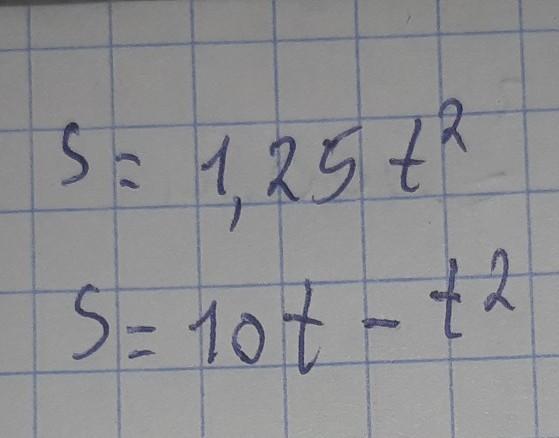 S = 1,25 t²
S = 10t - t²